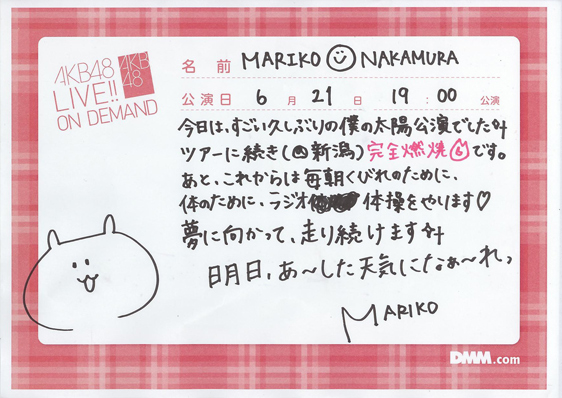 AKB48
LIVE!!
ON DEMAND
AKB
48
名前 MARIKO NAKAMURA
公演日 6月21日 19:00公演
今日は、すごい久しぶりの僕の太陽公演でした!!
ツアーに続き(新潟)完全燃焼です。
あと、これからは毎朝くびれのために、
体のために、ラジオ体操をやります♡
夢に向かって、走り続けます!!
明日、あ〜した天気になぁ〜れっ
MARIKO
DMM.com